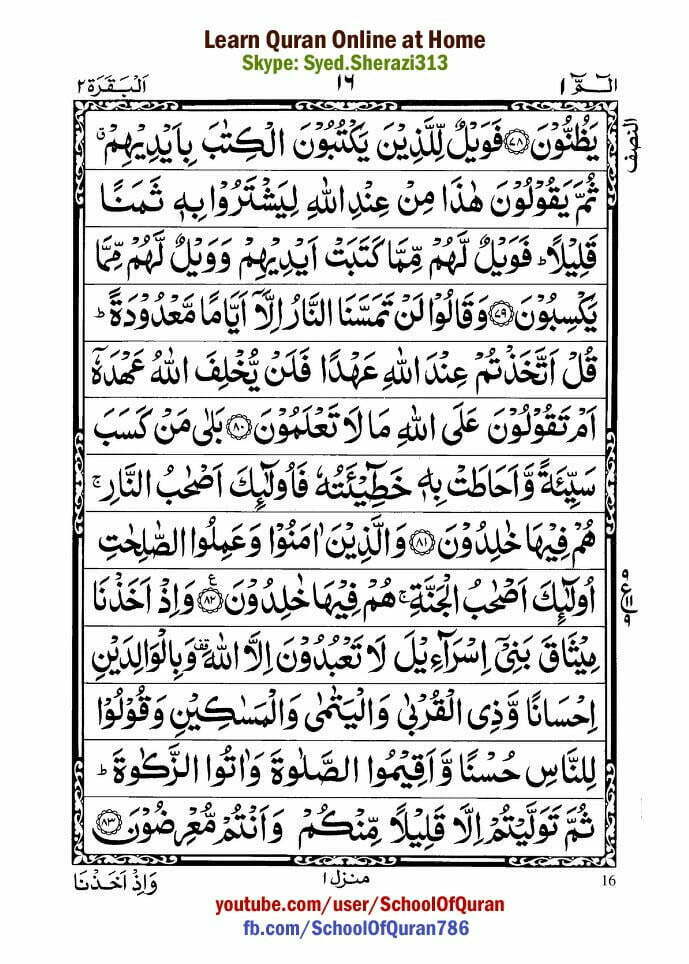 Learn Quran Online at Home
Skype: Syed.Sherazi313
الٓمّٓ ۱ ١٦ اَلْبَقَرَة ۲
النصف
يَظُنُّوْنَ ۝۷۸ فَوَيْلٌ لِّلَّذِيْنَ يَكْتُبُوْنَ الْكِتٰبَ بِاَيْدِيْهِمْ ۗ
ثُمَّ يَقُوْلُوْنَ هٰذَا مِنْ عِنْدِ اللّٰهِ لِيَشْتَرُوْا بِهٖ ثَمَنًا
قَلِيْلًا ؕ فَوَيْلٌ لَّهُمْ مِّمَّا كَتَبَتْ اَيْدِيْهِمْ وَوَيْلٌ لَّهُمْ مِّمَّا
يَكْسِبُوْنَ ۝۷۹ وَقَالُوْا لَنْ تَمَسَّنَا النَّارُ اِلَّاۤ اَيَّامًا مَّعْدُوْدَةً ؕ
قُلْ اَتَّخَذْتُمْ عِنْدَ اللّٰهِ عَهْدًا فَلَنْ يُّخْلِفَ اللّٰهُ عَهْدَهٗۤ
اَمْ تَقُوْلُوْنَ عَلَى اللّٰهِ مَا لَا تَعْلَمُوْنَ ۝۸۰ بَلٰى مَنْ كَسَبَ
سَيِّئَةً وَّاَحَاطَتْ بِهٖ خَطِيْٓئَتُهٗ فَاُولٰٓئِكَ اَصْحٰبُ النَّارِ ۚ
هُمْ فِيْهَا خٰلِدُوْنَ ۝۸۱ وَالَّذِيْنَ اٰمَنُوْا وَعَمِلُوا الصّٰلِحٰتِ
اُولٰٓئِكَ اَصْحٰبُ الْجَنَّةِ ۚ هُمْ فِيْهَا خٰلِدُوْنَ ۝۸۲ وَاِذْ اَخَذْنَا
مِيْثَاقَ بَنِيْۤ اِسْرَآءِيْلَ لَا تَعْبُدُوْنَ اِلَّا اللّٰهَ وَبِالْوَالِدَيْنِ
اِحْسَانًا وَّذِي الْقُرْبٰى وَالْيَتٰمٰى وَالْمَسٰكِيْنِ وَقُوْلُوْا
لِلنَّاسِ حُسْنًا وَّاَقِيْمُوا الصَّلٰوةَ وَاٰتُوا الزَّكٰوةَ ؕ
ثُمَّ تَوَلَّيْتُمْ اِلَّا قَلِيْلًا مِّنْكُمْ وَاَنْتُمْ مُّعْرِضُوْنَ ۝۸۳
16 منزل ۱ وَاِذْ اَخَذْنَا
youtube.com/user/SchoolOfQuran
fb.com/SchoolOfQuran786